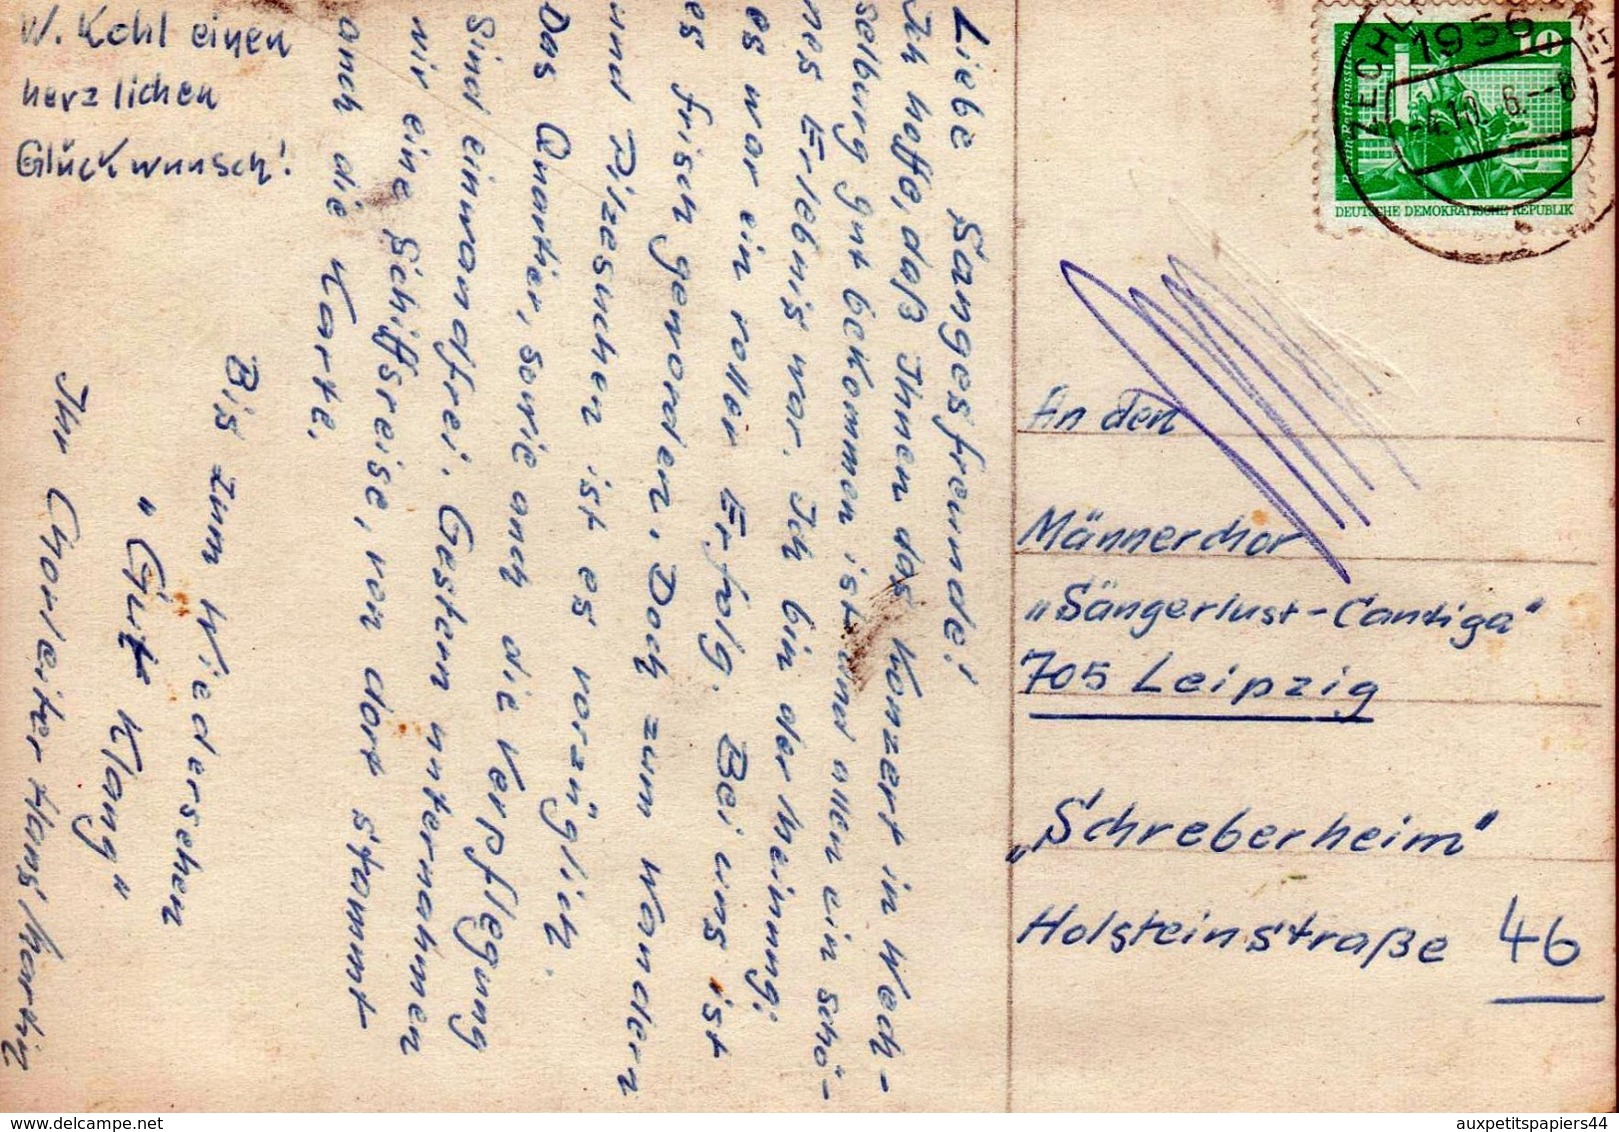 W. Kohl einen
herzlichen
Glückwunsch!
Liebe Sangesfreunde!
Ich hoffe, daß Ihnen das Konzert in Wech-
selburg gut bekommen ist und allen ein schö-
nes Erlebnis war. Ich bin der Meinung:
es war ein voller Erfolg. Bei uns ist
es frisch geworden. Doch zum Wandern
und Pilzesuchen ist es vorzüglich.
Das Quartier, sowie auch die Verpflegung
sind einwandfrei. Gestern unternahmen
wir eine Schiffsreise, von dort stammt
auch die Karte.
Bis zum Wiedersehen
"Gut Klang"
Ihr Chorleiter Hans Martin
1956
10
-4.10. 6.--8
DEUTSCHE DEMOKRATISCHE REPUBLIK
An den
Männerchor
„Sängerlust-Cantiga"
705 Leipzig
„Schreberheim"
Holsteinstraße 46
www.delcampe.net
auxpetitspapiers44